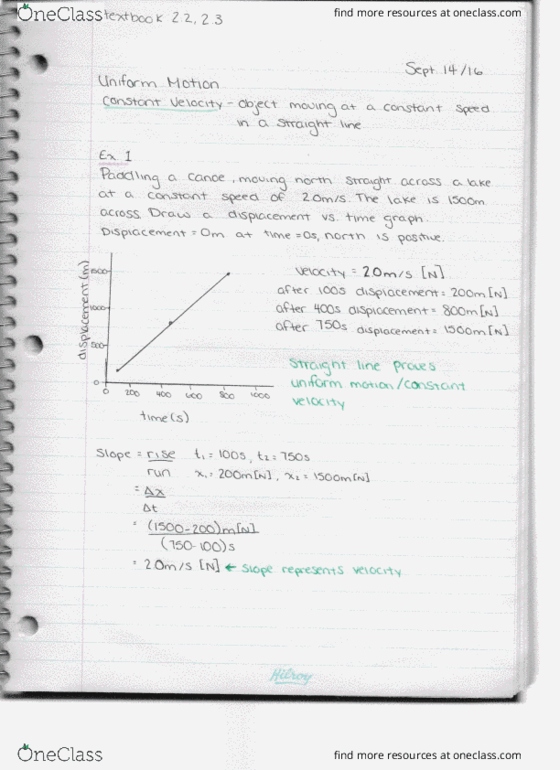 OneClass
textbook 2.2, 2.3
find more resources at oneclass.com
Sept 14/16
Uniform Motion
Constant Velocity - object moving at a constant speed
in a straight line
Ex 1
Paddling a canoe, moving north straight across a lake
at a constant speed of 2.0m/s. The lake is 1500m
across. Draw a displacement vs. time graph.
Displacement = 0m at time = 0s, north is positive.
displacement (m)
1500
1000
500
0
0 200 400 600 800 1000
time (s)
velocity = 2.0m/s [N]
after 100s displacement = 200m [N]
after 400s displacement = 800m [N]
after 750s displacement = 1500m [N]
Straight line proves
uniform motion/constant
velocity
Slope = rise t₁ = 100s, t₂ = 750s
run x₁ = 200m [N], x₂ = 1500m [N]
= Δx
Δt
= (1500-200)m[N]
(750-100)s
= 2.0m/s [N] ← slope represents velocity
Hilroy
OneClass
find more resources at oneclass.com